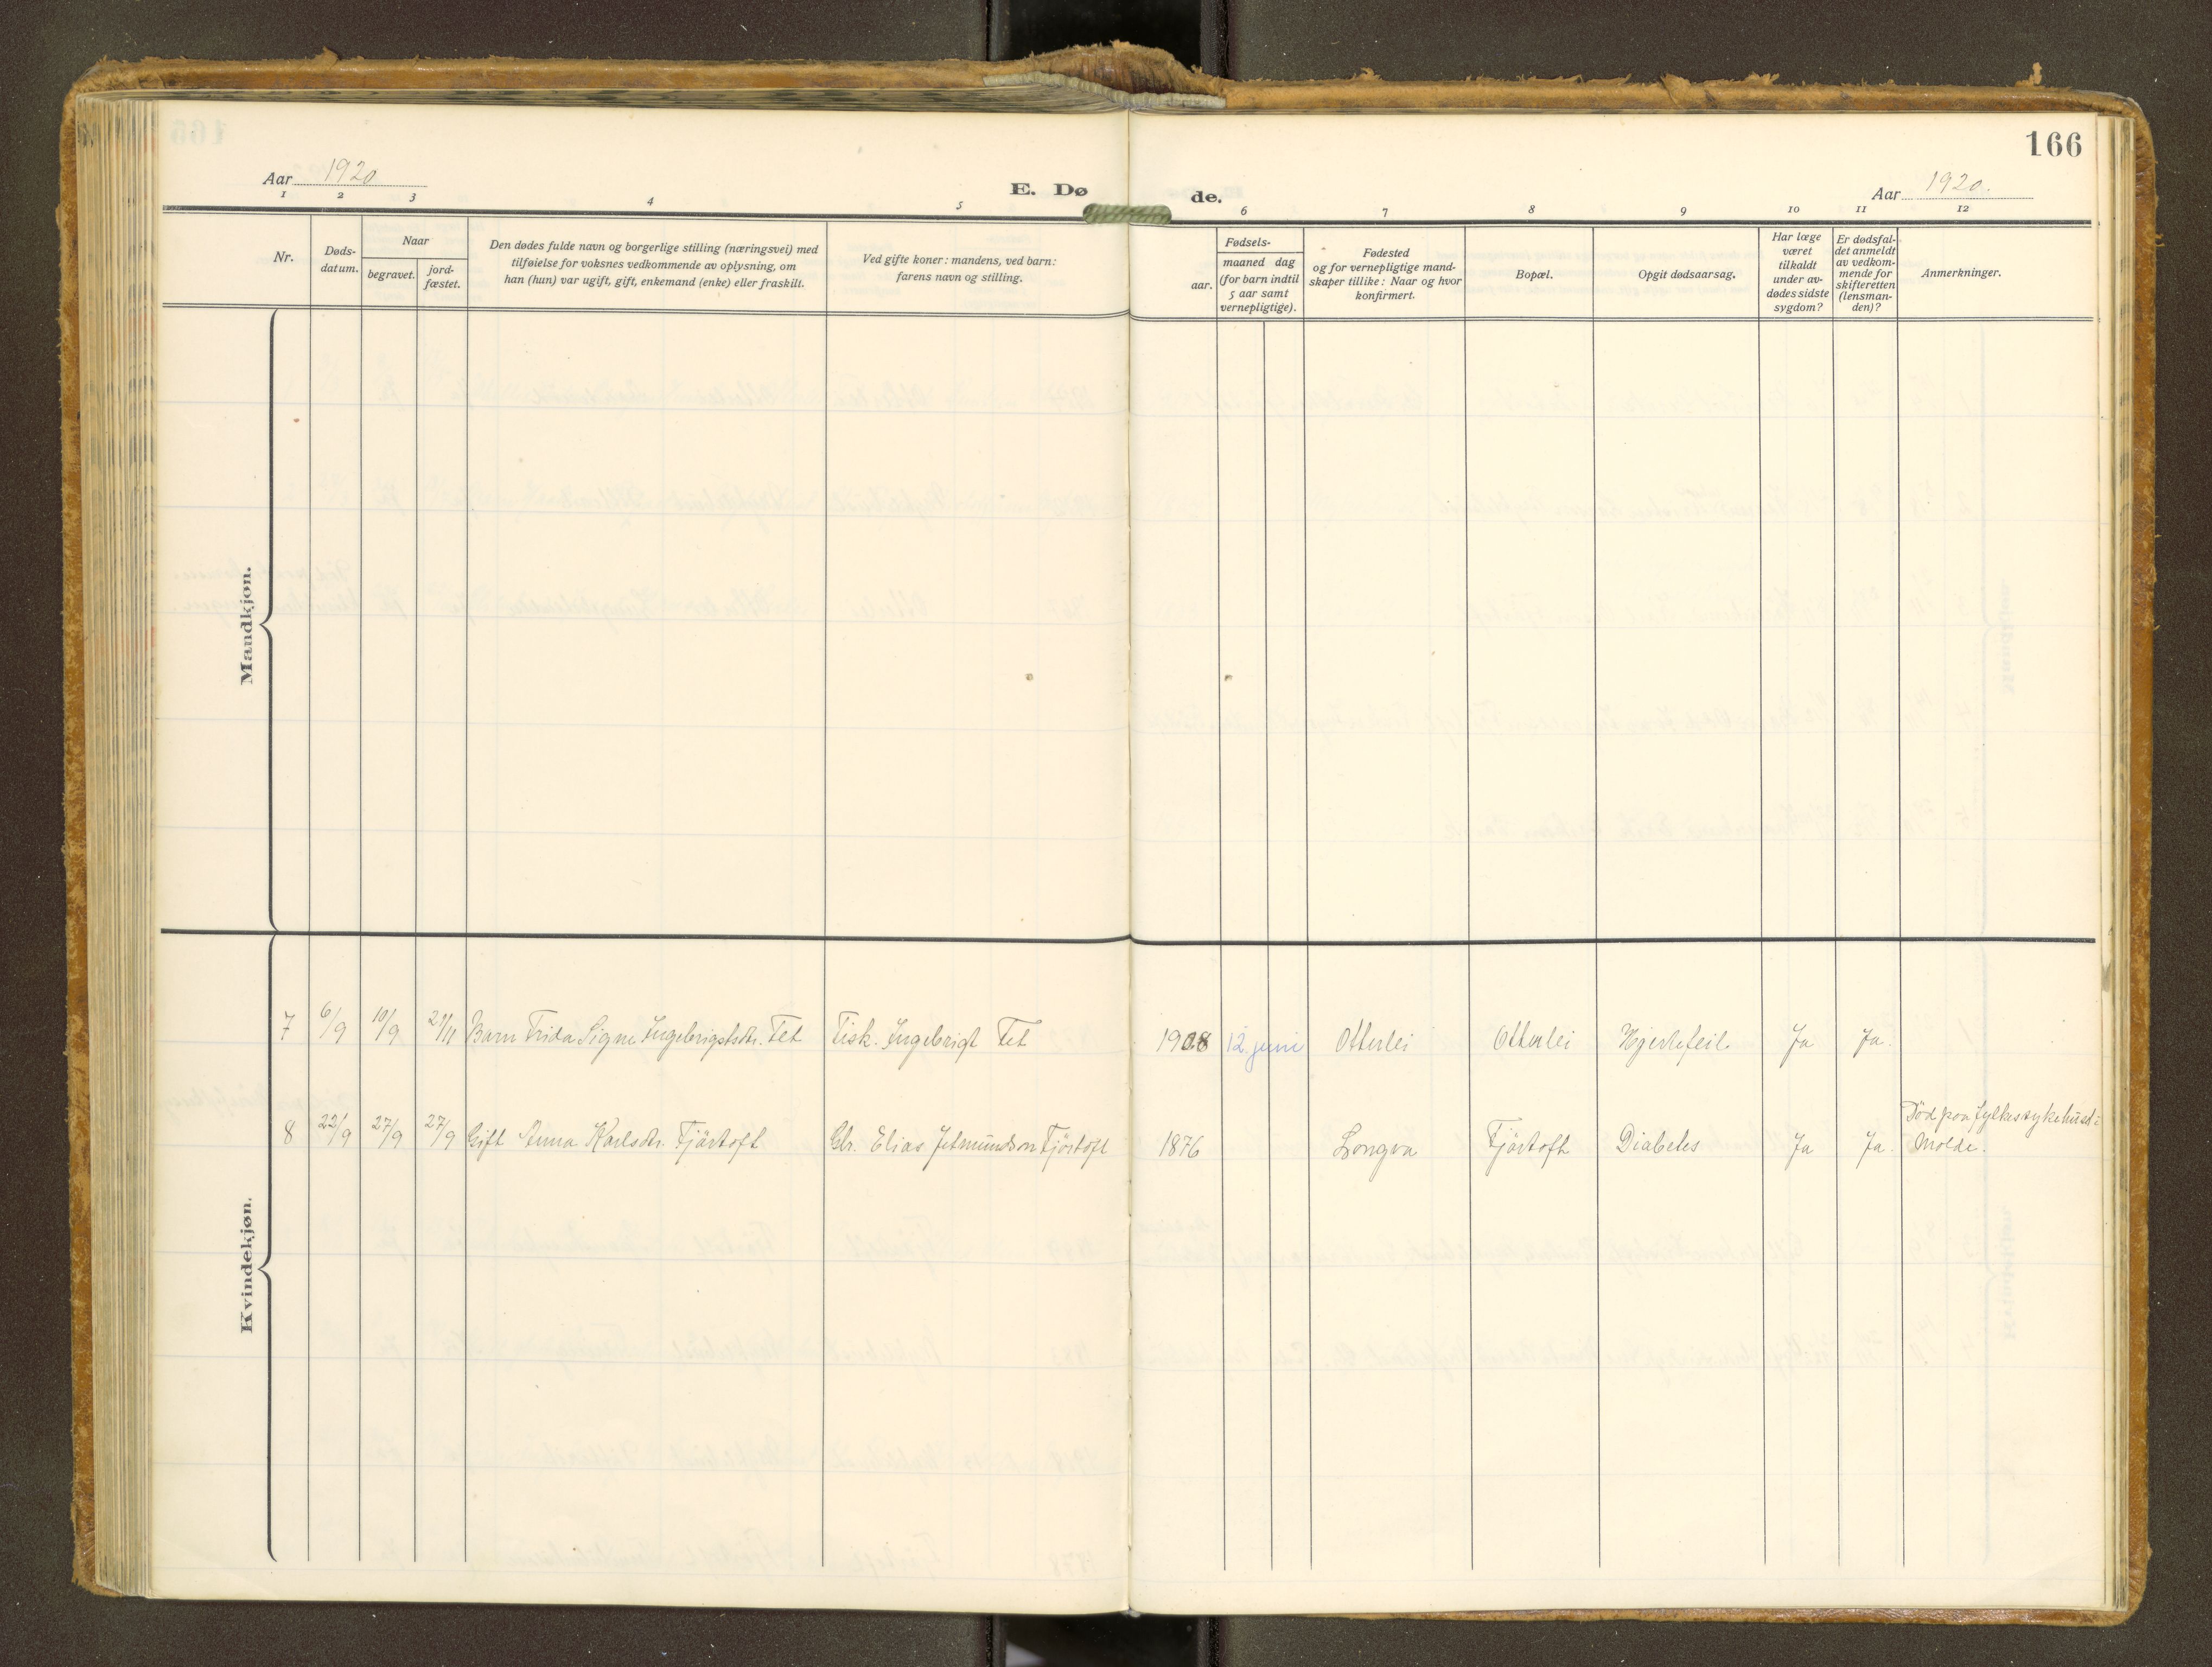 166
Aar 1920
E. Døde.
Aar 1920.
1 2 3 4 5 6 7 8 9 10 11 12
Nr.
Døds-
datum.
Naar
begravet.
jord-
fæstet.
Den dødes fulde navn og borgerlige stilling (næringsvei) med
tilføielse for voksnes vedkommende av oplysning, om
han (hun) var ugift, gift, enkemand (enke) eller fraskilt.
Ved gifte koner: mandens, ved barn:
farens navn og stilling.
Fødsels-
aar.
maaned dag
(for barn indtil
5 aar samt
vernepligtige).
Fødested
og for vernepligtige mand-
skaper tillike: Naar og hvor
konfirmert.
Bopæl.
Opgit dødsaarsag.
Har læge
været
tilkaldt
under av-
dødes sidste
sygdom?
Er dødsfal-
det anmeldt
av vedkom-
mende for
skifteretten
(lensman-
den)?
Anmerkninger.
Mandkjøn.
Kvindekjøn.
7 6/9 10/9 21/11 Barn Frida Signe Ingebrigtsdtr. Tet Fisk. Ingebrigt Tet 1918 12 juni Otterlei Otterlei Hjertefeil Ja Ja.
8 22/9 27/9 27/9 Gift Anna Karlsdtr. Fjörtoft Gbr. Elias Jetmundson Fjörtoft 1876 Longva Fjörtoft Diabetes Ja Ja. Död paa fylkessykehuset i
Molde.